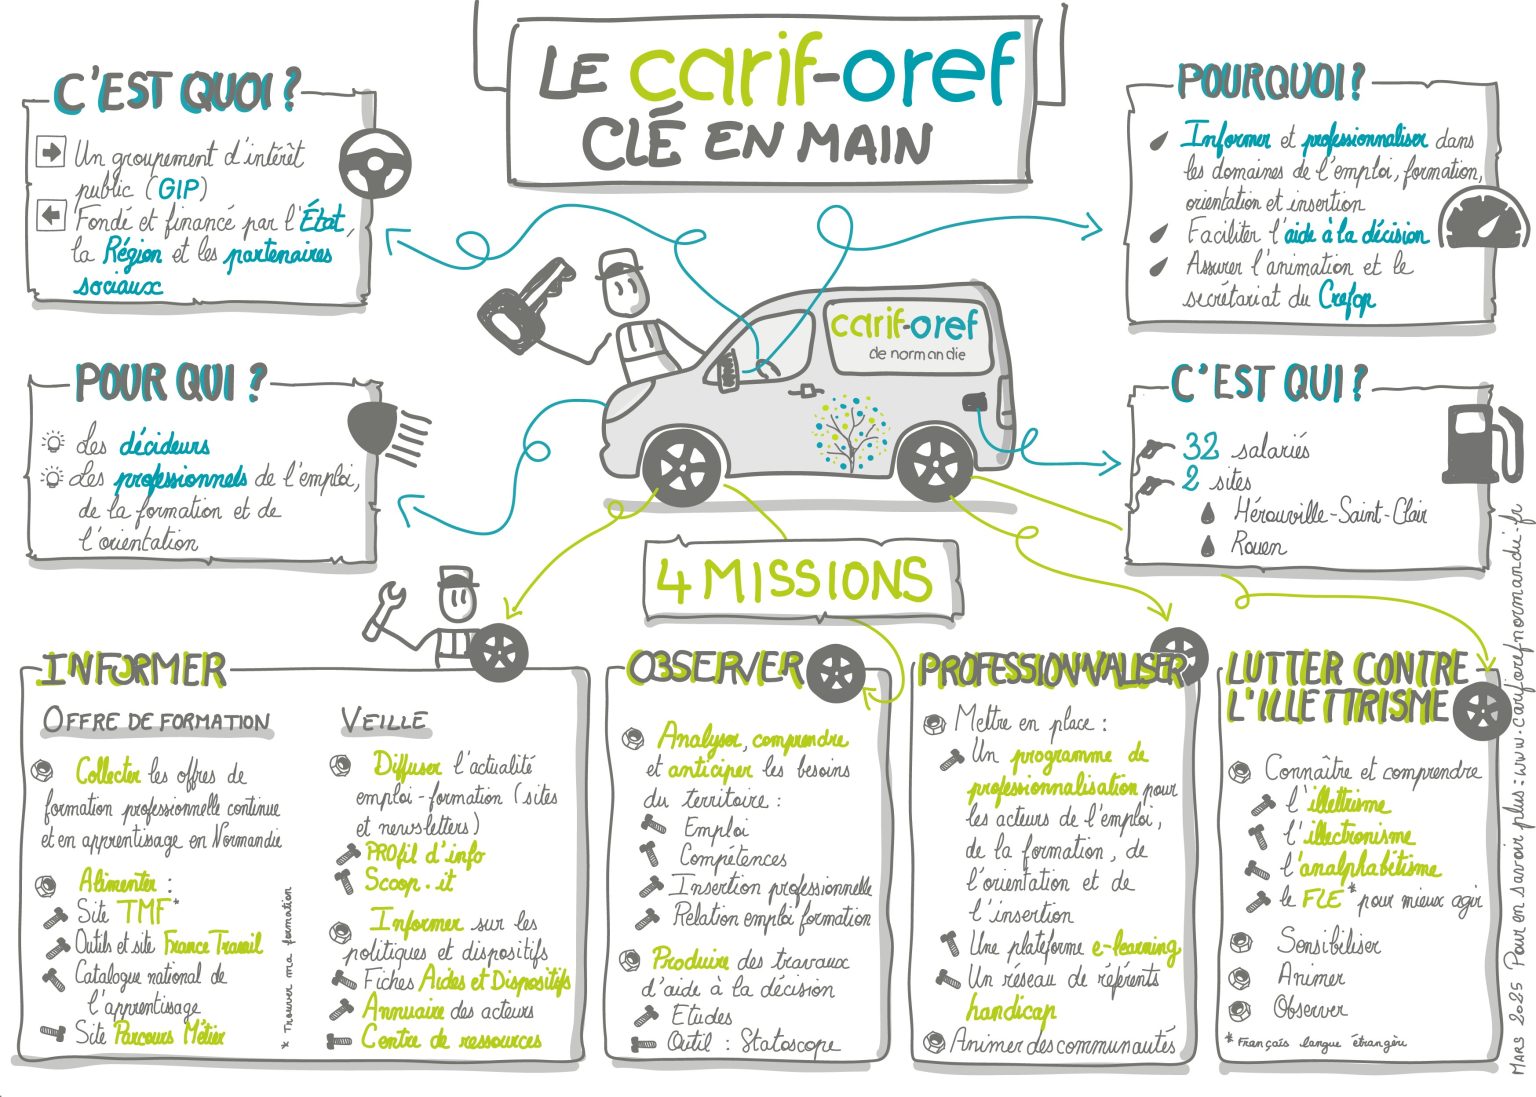 LE carif-oref
CLÉ EN MAIN
C'EST QUOI ?
Un groupement d'intérêt
public (GIP)
Fondé et financé par l'État,
la Région et les partenaires
sociaux
POUR QUI ?
Les décideurs
Les professionnels de l'emploi,
de la formation et de
l'orientation
carif-oref
de normandie
POURQUOI ?
Informer et professionnaliser dans
les domaines de l'emploi, formation,
orientation et insertion
Faciliter l'aide à la décision
Assurer l'animation et le
secrétariat du Crefop
C'EST QUI ?
32 salariés
2 sites
Hérouville-Saint-Clair
Rouen
4 MISSIONS
INFORMER
OFFRE DE FORMATION
Collecter les offres de
formation professionnelle continue
et en apprentissage en Normandie
Alimenter :
Site TMF*
Outils et site France Travail
Catalogue national de
l'apprentissage
Site Parcours Métier
* Trouver ma formation
VEILLE
Diffuser l'actualité
emploi-formation (sites
et newsletters)
PROfil d'info
Scoop.it
Informer sur les
politiques et dispositifs
Fiches Aides et Dispositifs
Annuaire des acteurs
Centre de ressources
OBSERVER
Analyser, comprendre
et anticiper les besoins
du territoire :
Emploi
Compétences
Insertion professionnelle
Relation emploi formation
Produire des travaux
d'aide à la décision
Etudes
Outil : Statoscope
PROFESSIONNALISER
Mettre en place :
Un programme de
professionnalisation pour
les acteurs de l'emploi,
de la formation, de
l'orientation et de
l'insertion
Une plateforme e-learning
Un réseau de référents
handicap
Animer des communautés
LUTTER CONTRE
L'ILLETTRISME
Connaître et comprendre
l'illettrisme
l'illectronisme
l'analphabétisme
le FLE* pour mieux agir
Sensibiliser
Animer
Observer
* Français langue étrangère
MARS 2025 Pour en savoir plus : www.cariforefnormandie.fr